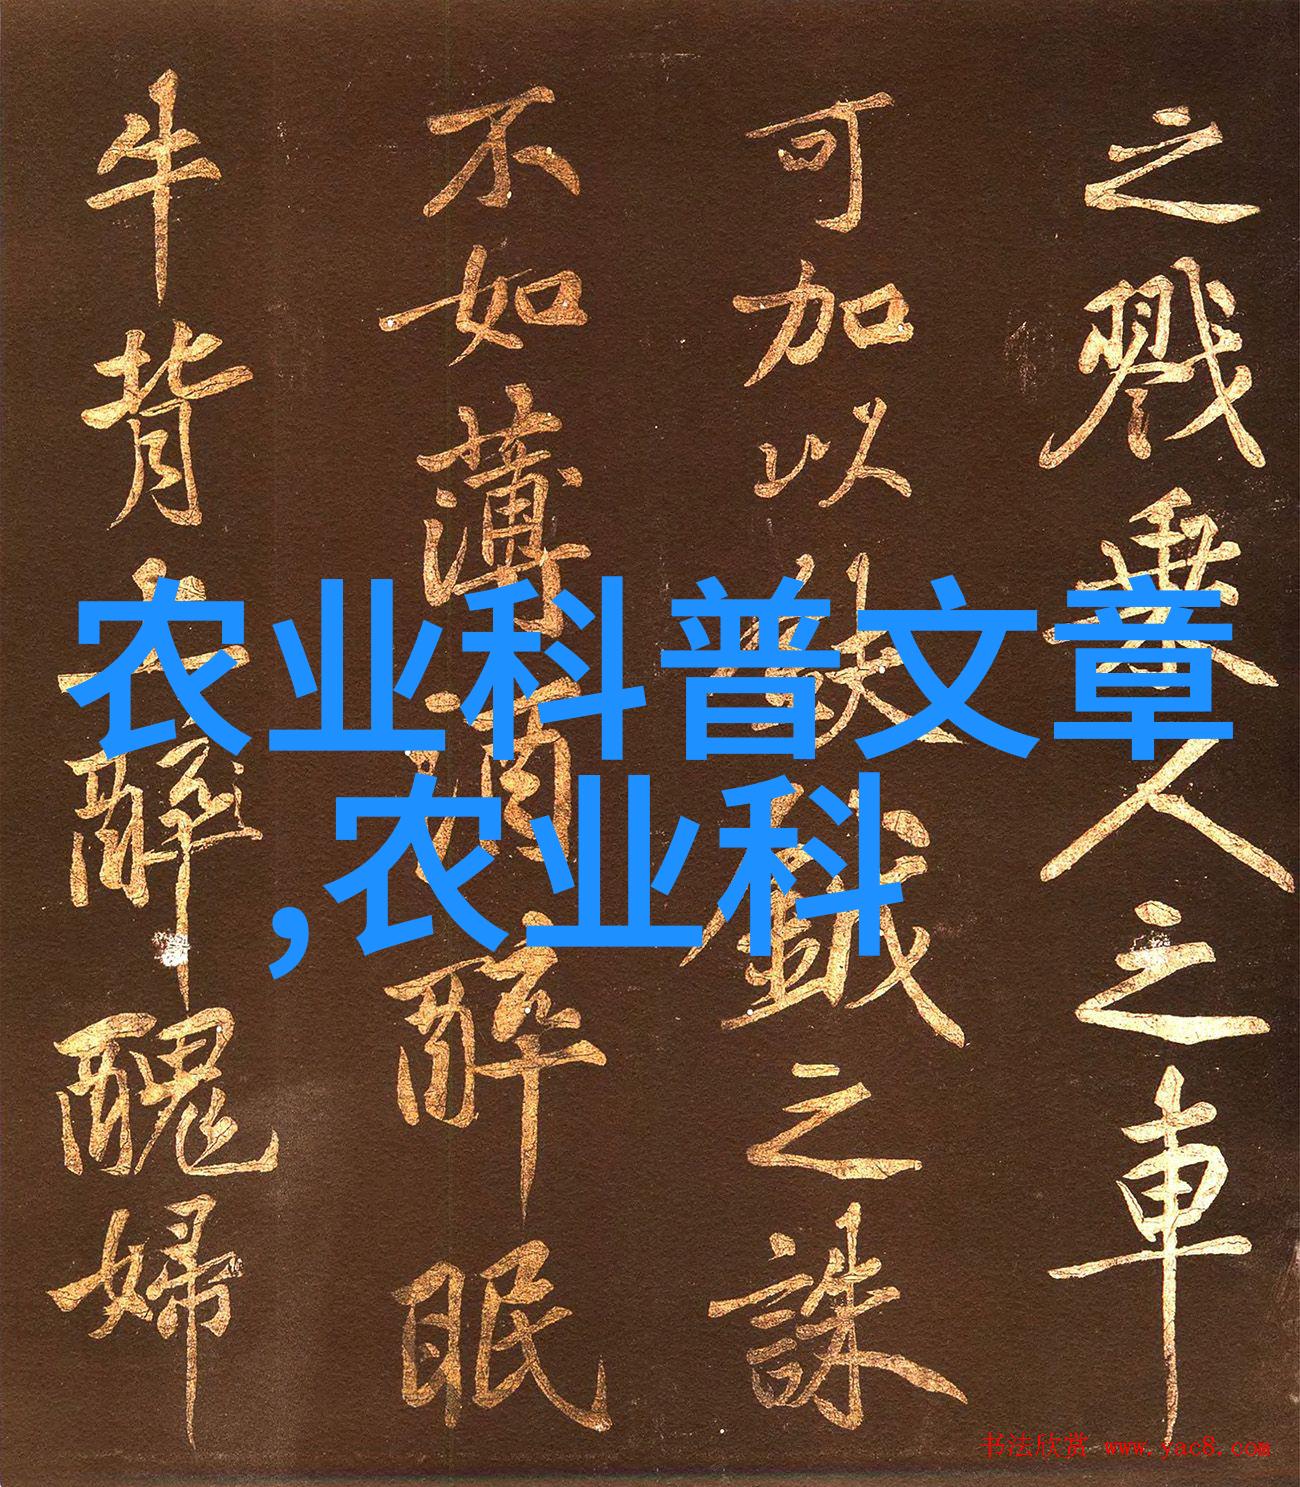 之戮乘人之車
可加以鈇鉞之誅
不如薄酒醉眠
牛背上醉醜婦
农业科普文章
,农业科
书法欣赏 www.yac8.com